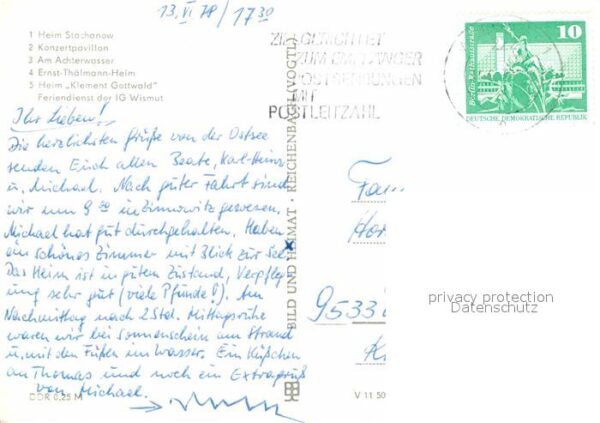 13. VI 78 / 17 30
1 Heim Stachanow
2 Konzertpavillon
3 Am Achterwasser
4 Ernst-Thälmann-Heim
5 Heim „Klement Gottwald"
Feriendienst der IG Wismut
Ihr Lieben!
Die herzlichsten Grüße von der Ostsee
senden Euch allen Beate, Karl-Heinz
u. Michael. Nach guter Fahrt sind
wir um 9 30 in Zinnowitz gewesen.
Michael hat gut durchgehalten. Haben
ein schönes Zimmer mit Blick zur See.
Das Heim ist in gutem Zustand, Verpfleg-
ung sehr gut (viele Pfunde!). Am
Nachmittag nach 2 Std. Mittagsruhe
waren wir bei Sonnenschein am Strand
u. mit den Füßen im Wasser. Ein Küßchen
an Thomas und noch ein Extragruß
von Michael.
DDR 0,25 M
BILD UND HEIMAT · REICHENBACH (VOGTL)
V 11 50
GERICHTET
ZUM EMPFÄNGER
POSTSENDUNGEN
MIT
POSTLEITZAHL
10
Berlin, Rathausstraße
DEUTSCHE DEMOKRATISCHE REPUBLIK
Fam
9533
privacy protection
Datenschutz